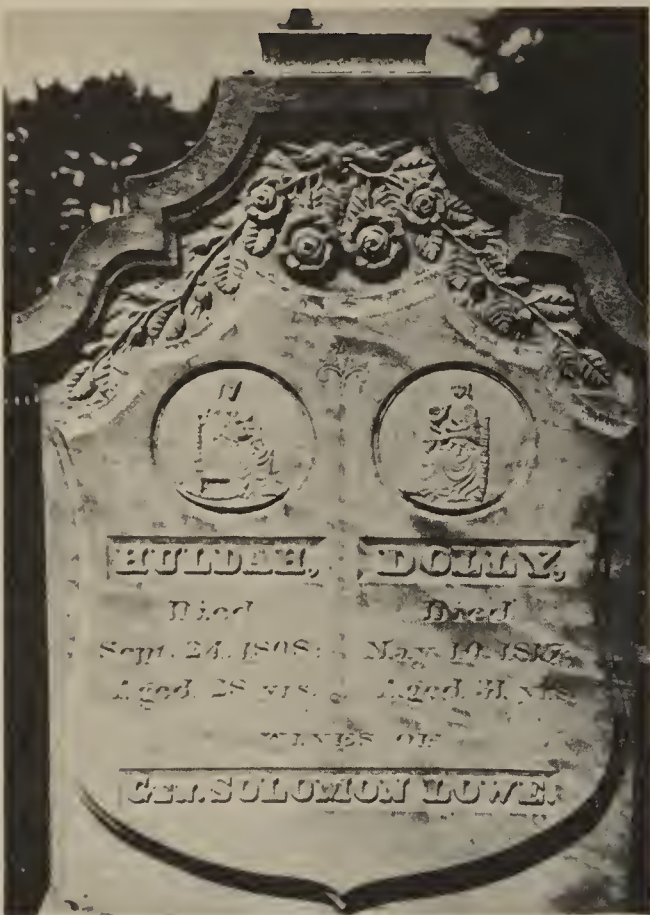 HULDAH,
Died
Sept. 24, 1808:
Aged 28 yrs.
DOLLY,
Died
May
Aged yrs
WIVES OF
GEN. SOLOMON LOWE.